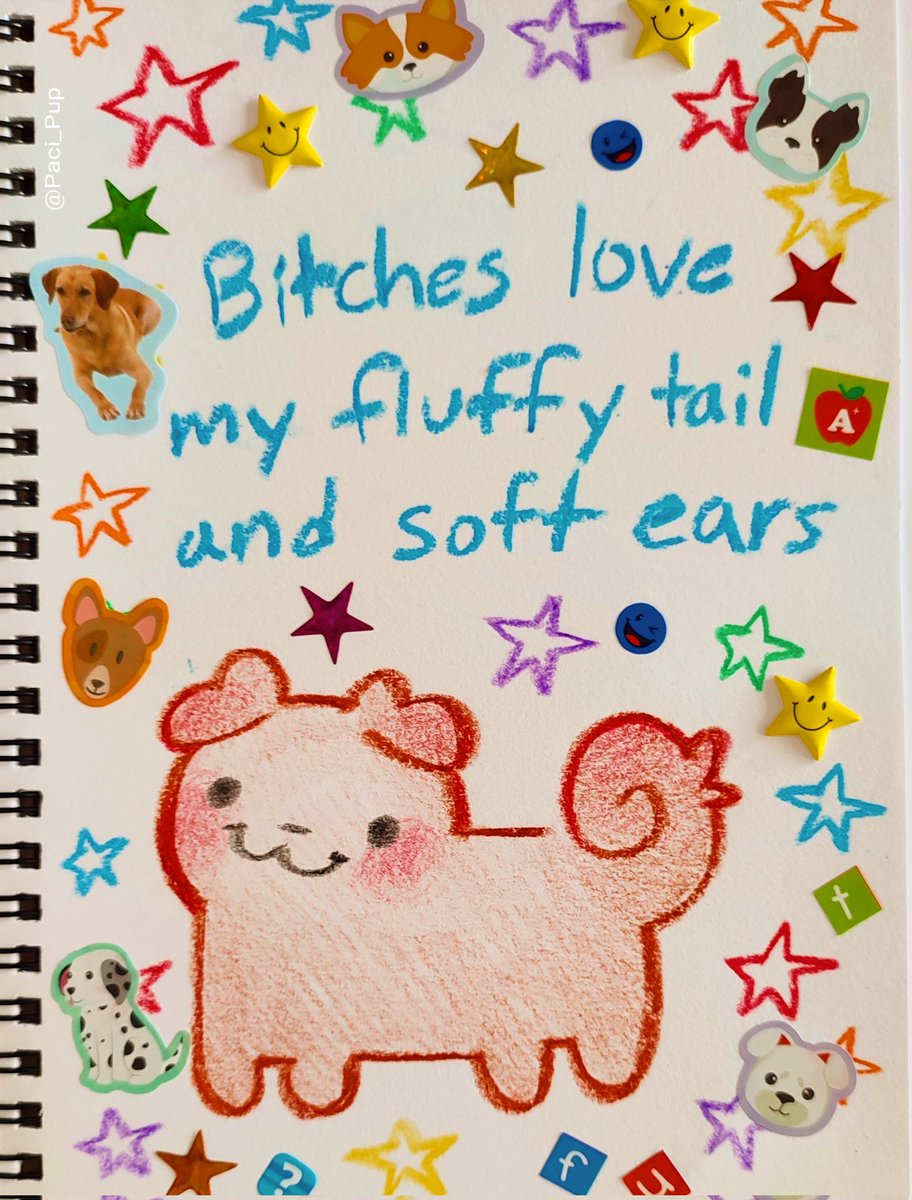 @Paci_Pup
Bitches love
my fluffy tail
and soft ears
A+
t
?
f
u